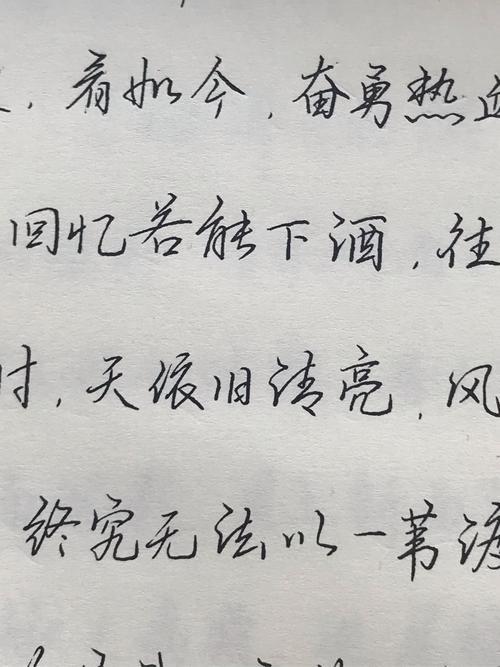 ，看如今，奋勇热
回忆若能下酒，往
时，天依旧清亮，风
终究无法以一苇渡